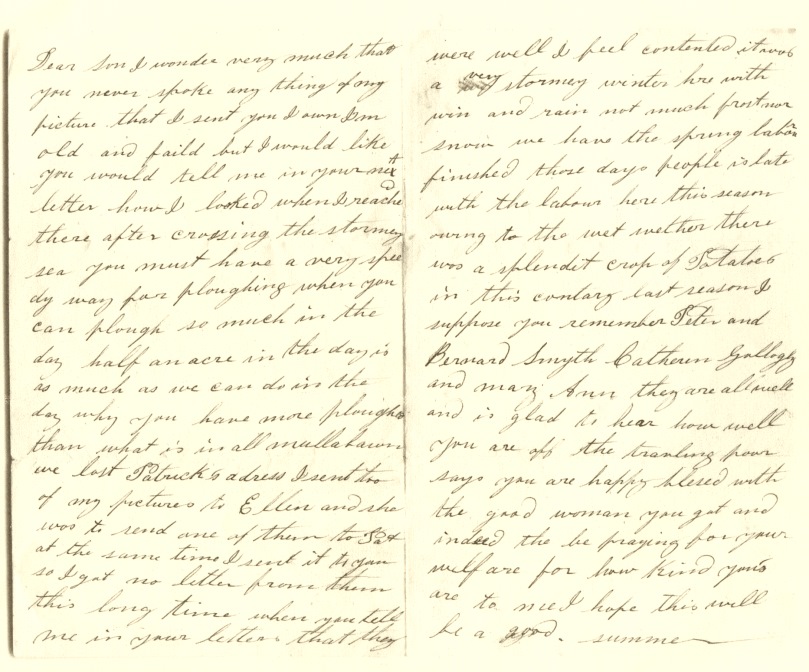 Dear Son I wonder very much that
you never spoke any thing of my
picture that I sent you I own I'm
old and faild but I would like
you would tell me in your next
letter how I looked when I reache
there after crossing the stormey
sea you must have a very spee
dy way for ploughing when you
can plough so much in the
day half an acre in the day is
as much as we can do in the
day why you have more ploughs
than what is in all mullabawn
we lost Patrick's adress I sent too
of my pictures to Ellen and she
was to send one of them to Pat
at the same time I sent it to you
so I got no letter from them
this long time when you tell
me in your letter that they
were well I feel contented it was
a very stormey winter hre with
win and rain not much frost nor
snow we have the spring labour
finished those days people is late
with the labour here this season
owing to the wet wether there
was a splendet crop of Patatoes
in this contary last season I
suppose you remember Peter and
Bernard Smyth Catheren Gollogly
and mary Ann they are all well
and is glad to hear how well
you are off the travling poor
says you are happy blesed with
the good woman you got and
indeed the be praying for your
welfare for how kind yous
are to me I hope this will
be a good. summer